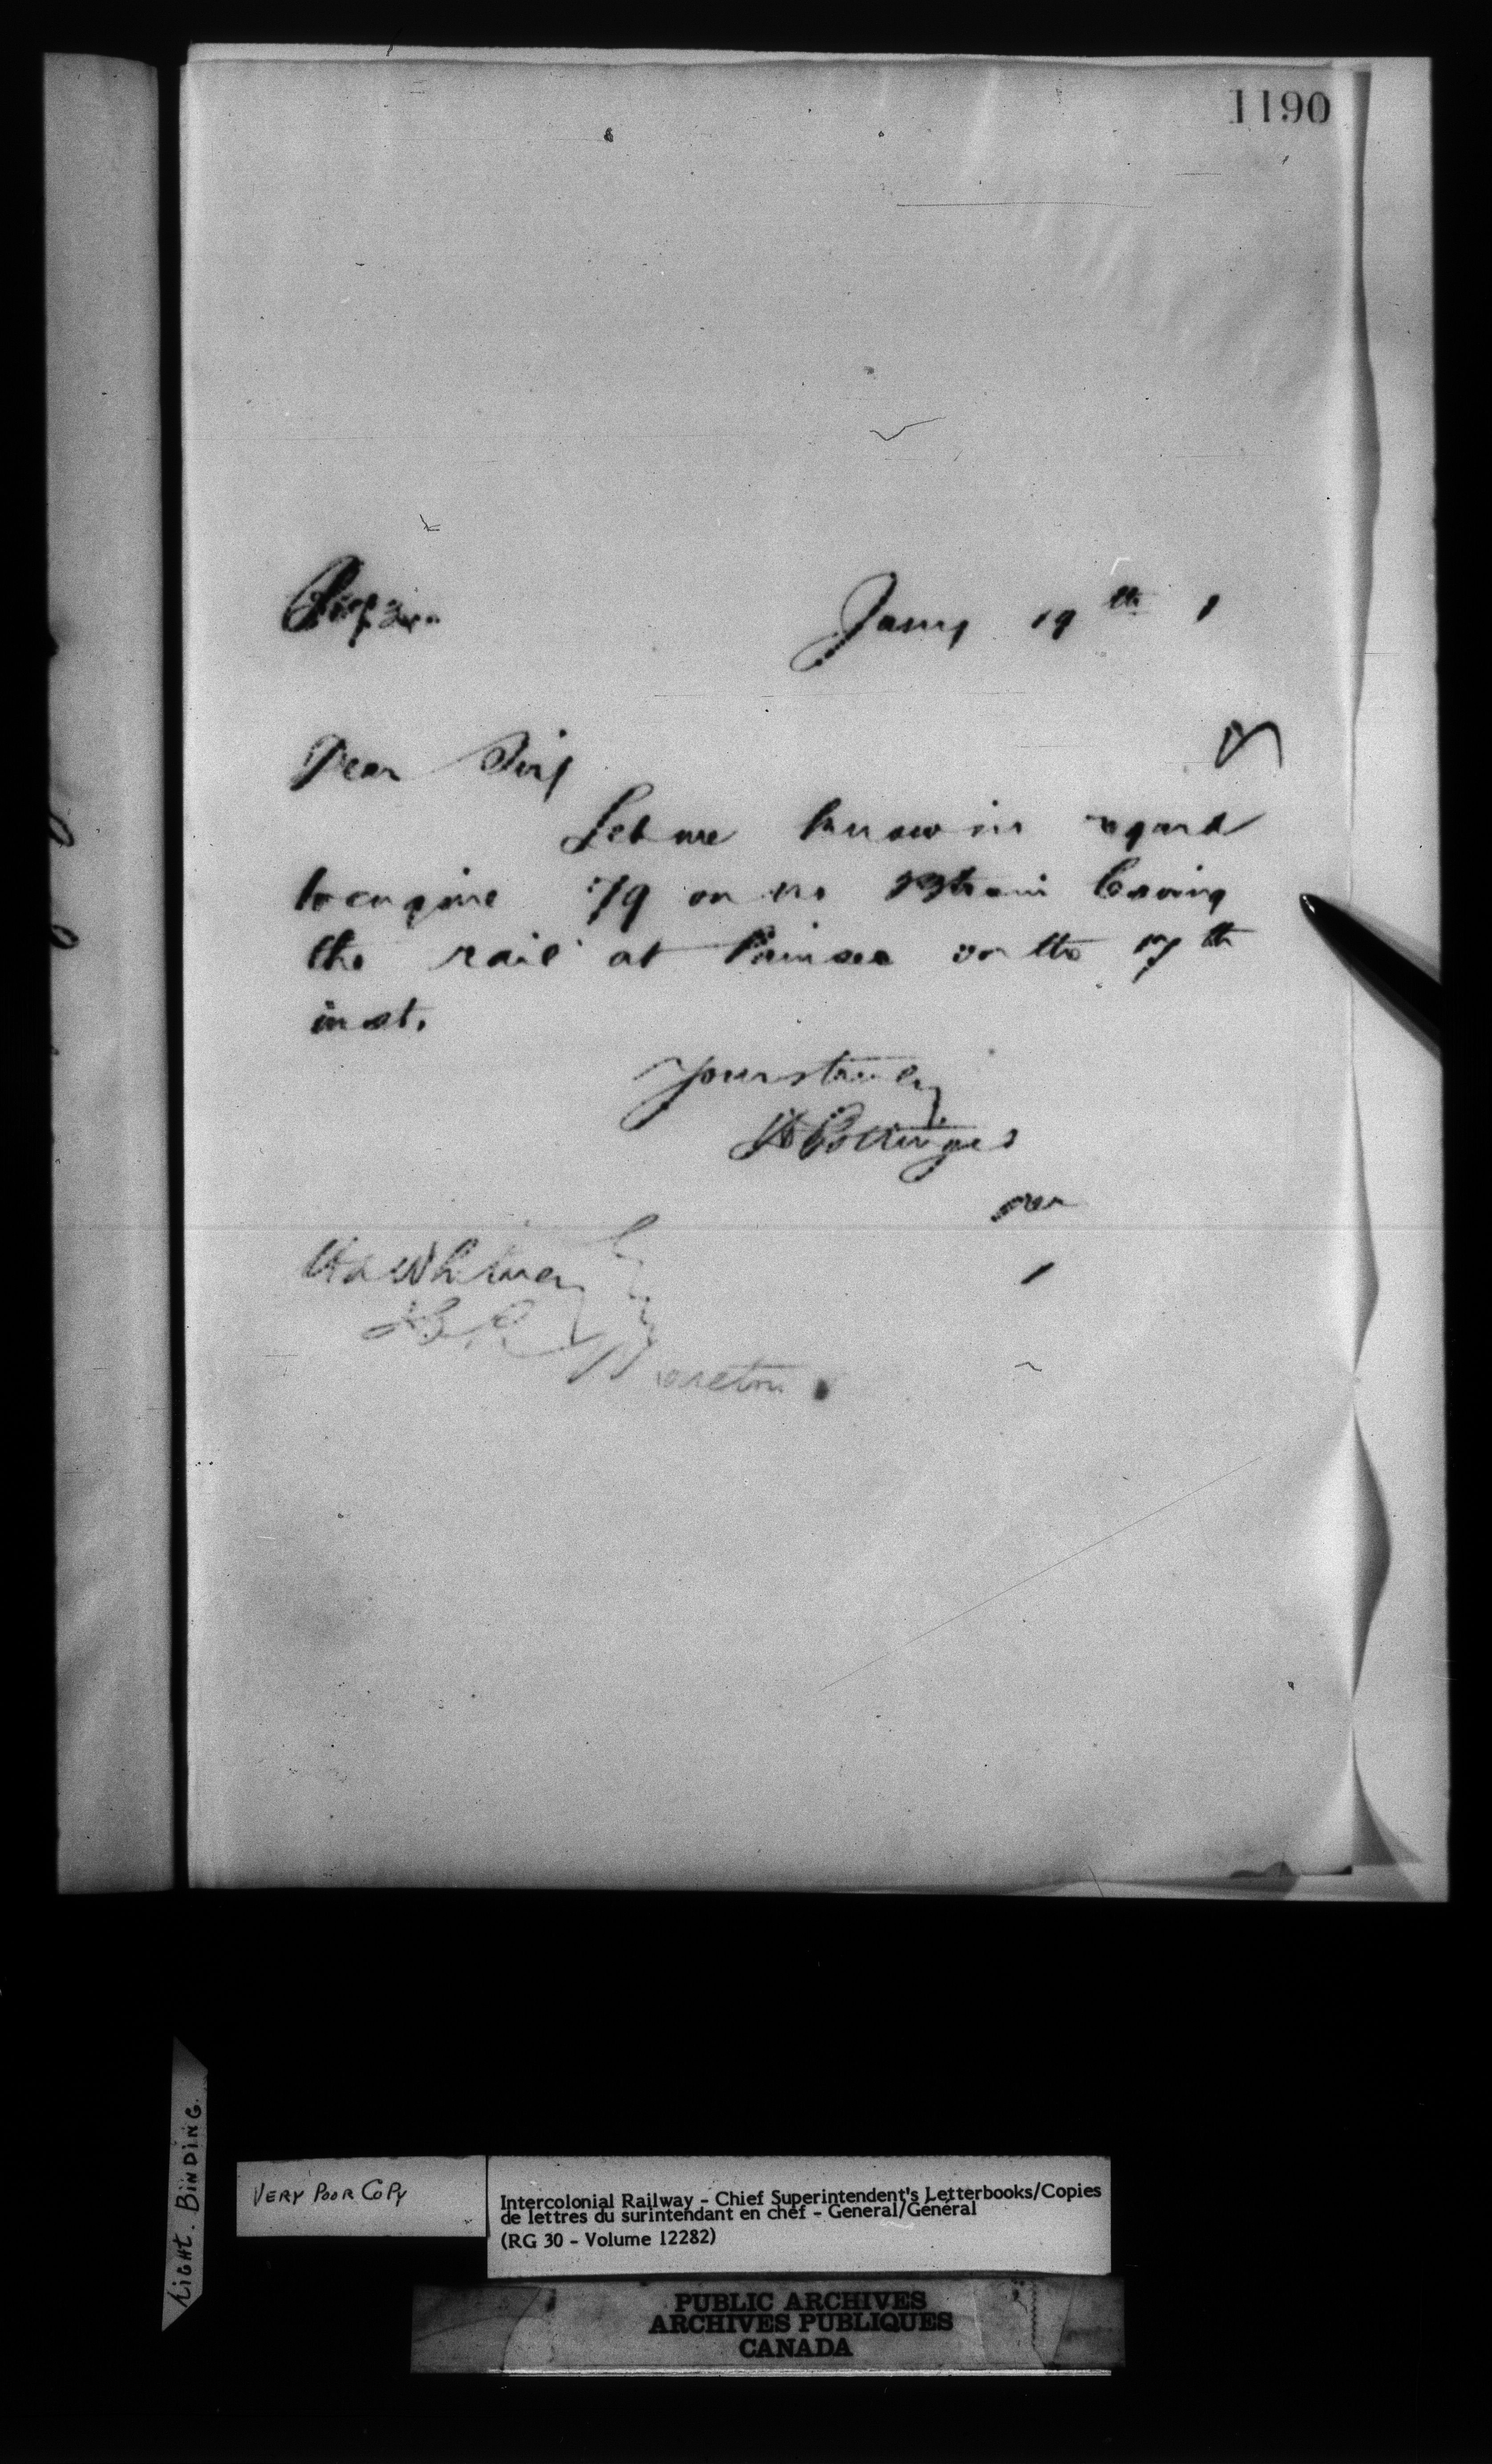 1190
Jany 19th
Dear Sir,
Let me know in regard
to engine 79 on no 13 train leaving
the rail at Painsec on the 17th
inst.
Yours truly
D Pottinger
per
H A Whitney
Moncton
LIGHT. BINDING.
VERY POOR COPY
Intercolonial Railway - Chief Superintendent's Letterbooks/Copies
de lettres du surintendant en chef - General/Général
(RG 30 - Volume 12282)
PUBLIC ARCHIVES
ARCHIVES PUBLIQUES
CANADA